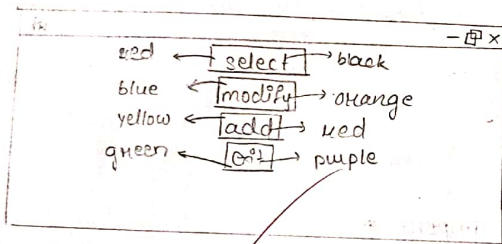 red select black
blue modify orange
yellow add red
green exit purple